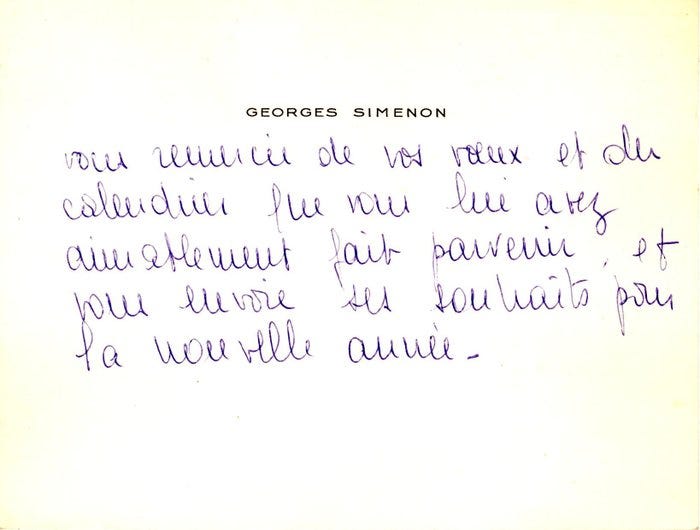 GEORGES SIMENON
vous remercie de vos vœux et du
calendrier que vous lui avez
aimablement fait parvenir, et
vous envoie ses souhaits pour
la nouvelle année -